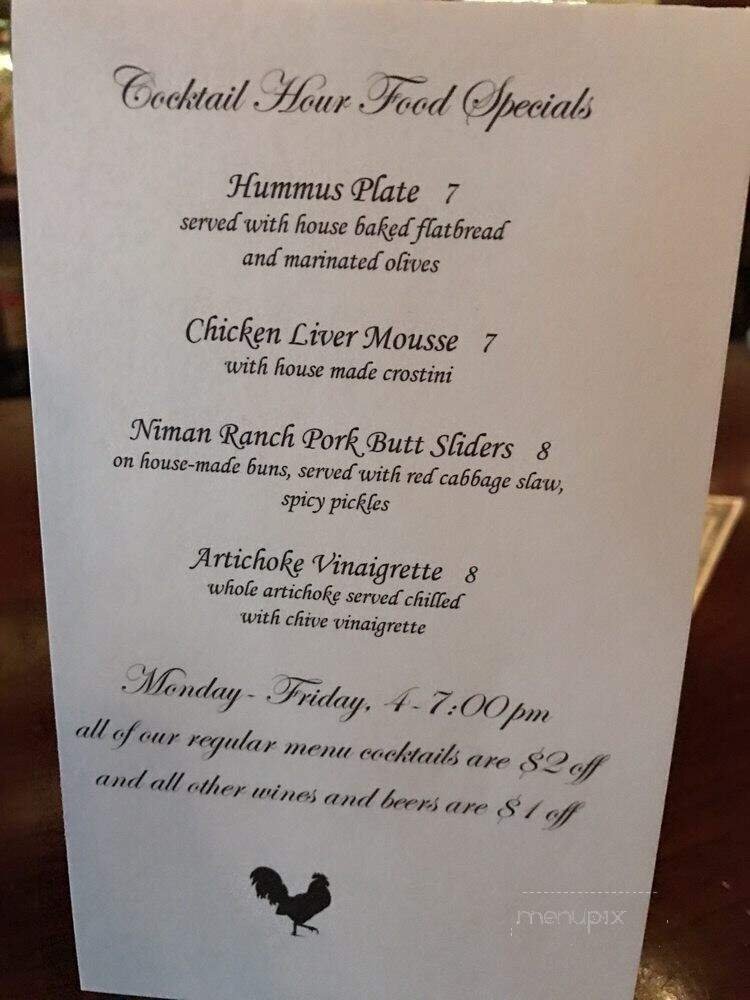 Cocktail Hour Food Specials
Hummus Plate 7
served with house baked flatbread
and marinated olives
Chicken Liver Mousse 7
with house made crostini
Niman Ranch Pork Butt Sliders 8
on house-made buns, served with red cabbage slaw,
spicy pickles
Artichoke Vinaigrette 8
whole artichoke served chilled
with chive vinaigrette
Monday - Friday, 4-7:00pm
all of our regular menu cocktails are $2 off
and all other wines and beers are $1 off
menupix